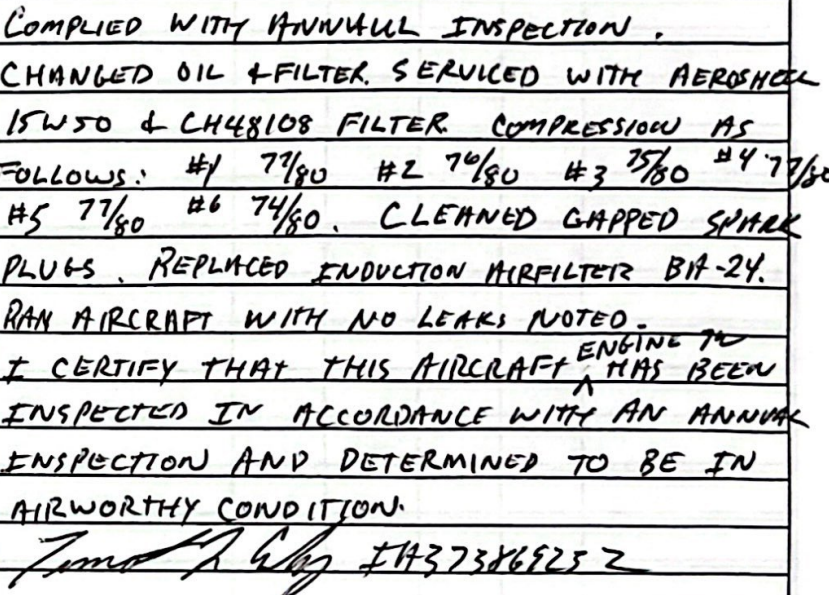 COMPLIED WITH ANNUAUL INSPECTION.
CHANGED OIL & FILTER. SERVICED WITH AEROSHELL
15W50 & CH48108 FILTER. COMPRESSION AS
FOLLOWS: #1 77/80 #2 76/80 #3 75/80 #4 77/80
#5 77/80 #6 74/80. CLEANED GAPPED SPARK
PLUGS. REPLACED INDUCTION AIRFILTER BA-24.
RAN AIRCRAFT WITH NO LEAKS NOTED.
I CERTIFY THAT THIS AIRCRAFT ENGINE HAS BEEN
INSPECTED IN ACCORDANCE WITH AN ANNUAL
INSPECTION AND DETERMINED TO BE IN
AIRWORTHY CONDITION.
IA373869252